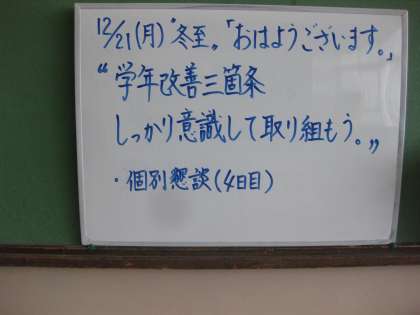 12/21(月)“冬至„「おはようございます。」
“学年改善三箇条
しっかり意識して取り組もう。„
・個別懇談(4日目)